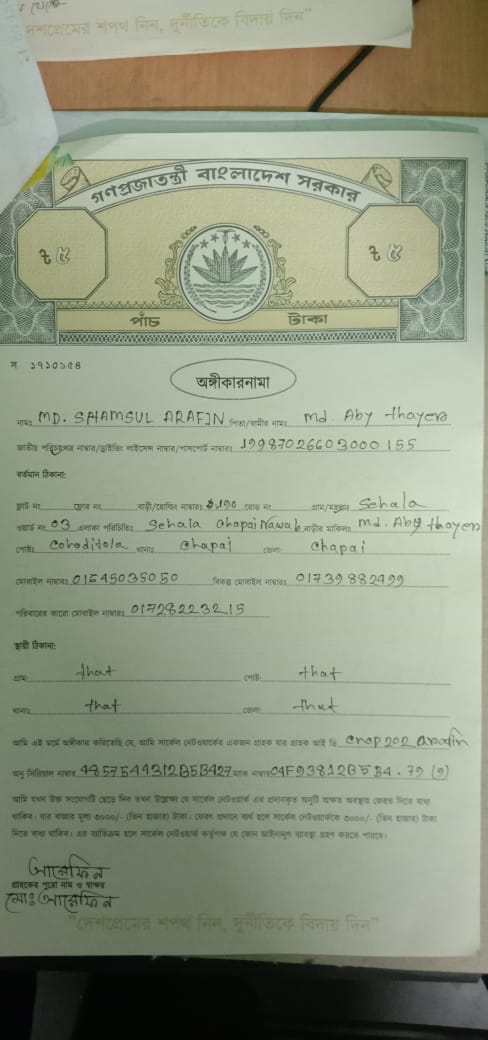 দেশপ্রেমের শপথ নিন, দুর্নীতিকে বিদায় দিন"
গণপ্রজাতন্ত্রী বাংলাদেশ সরকার
৳ ৫ ৳ ৫
পাঁচ টাকা
স ১৭১০১৫৪
অঙ্গীকারনামা
নামঃ MD. SHAMSUL ARAFIN পিতা/স্বামীর নামঃ Md. Aby thayero
জাতীয় পরিচয়পত্র নাম্বার/ড্রাইভিং লাইসেন্স নাম্বার/পাসপোর্ট নাম্বারঃ 19987026603000155
বর্তমান ঠিকানা:
ফ্ল্যাট নং ফ্লোর নং বাড়ী/হোল্ডিং নাম্বারঃ 190 রোড নং গ্রাম/মহল্লাঃ Sehala
ওয়ার্ড নং 03 এলাকা পরিচিতিঃ Sehala chapai Nawab বাড়ীর মালিকঃ Md. Aby thayen
পোষ্টঃ থানাঃ chapai জেলা chapai
মোবাইল নাম্বারঃ 01545035050 বিকল্প মোবাইল নাম্বারঃ 01739882499
পরিবারের কারো মোবাইল নাম্বারঃ 01728223215
স্থায়ী ঠিকানা:
গ্রাম: that পোষ্ট: that
থানাঃ that জেলা: that
আমি এই মর্মে অঙ্গীকার করিতেছি যে, আমি সার্কেল নেটওয়ার্কের একজন গ্রাহক যার গ্রাহক আই ডি cnap202 arafin
অনু সিরিয়াল নাম্বার 4857544312B5B427 ম্যাক নাম্বার 04F93812B5B4.79 (9)
আমি যখন উক্ত সংযোগটি ছেড়ে দিব তখন উল্লেখ্য যে সার্কেল নেটওয়ার্ক এর প্রদানকৃত অনুটি অক্ষত অবস্থায় ফেরত দিতে বাধ্য
থাকিব। যার বাজার মূল্য ৩০০০/- (তিন হাজার) টাকা। ফেরৎ প্রদানে ব্যর্থ হলে সার্কেল নেটওয়ার্ককে ৩০০০/- (তিন হাজার) টাকা
দিতে বাধ্য থাকিব। এর ব্যতিক্রম হলে সার্কেল নেটওয়ার্ক কর্তৃপক্ষ যে কোন আইনানুগ ব্যবস্থা গ্রহণ করতে পারবে।
আরেফিন
গ্রাহকের পুরো নাম ও স্বাক্ষর
মোঃ আরেফিন
"দেশপ্রেমের শপথ নিন, দুর্নীতিকে বিদায় দিন"